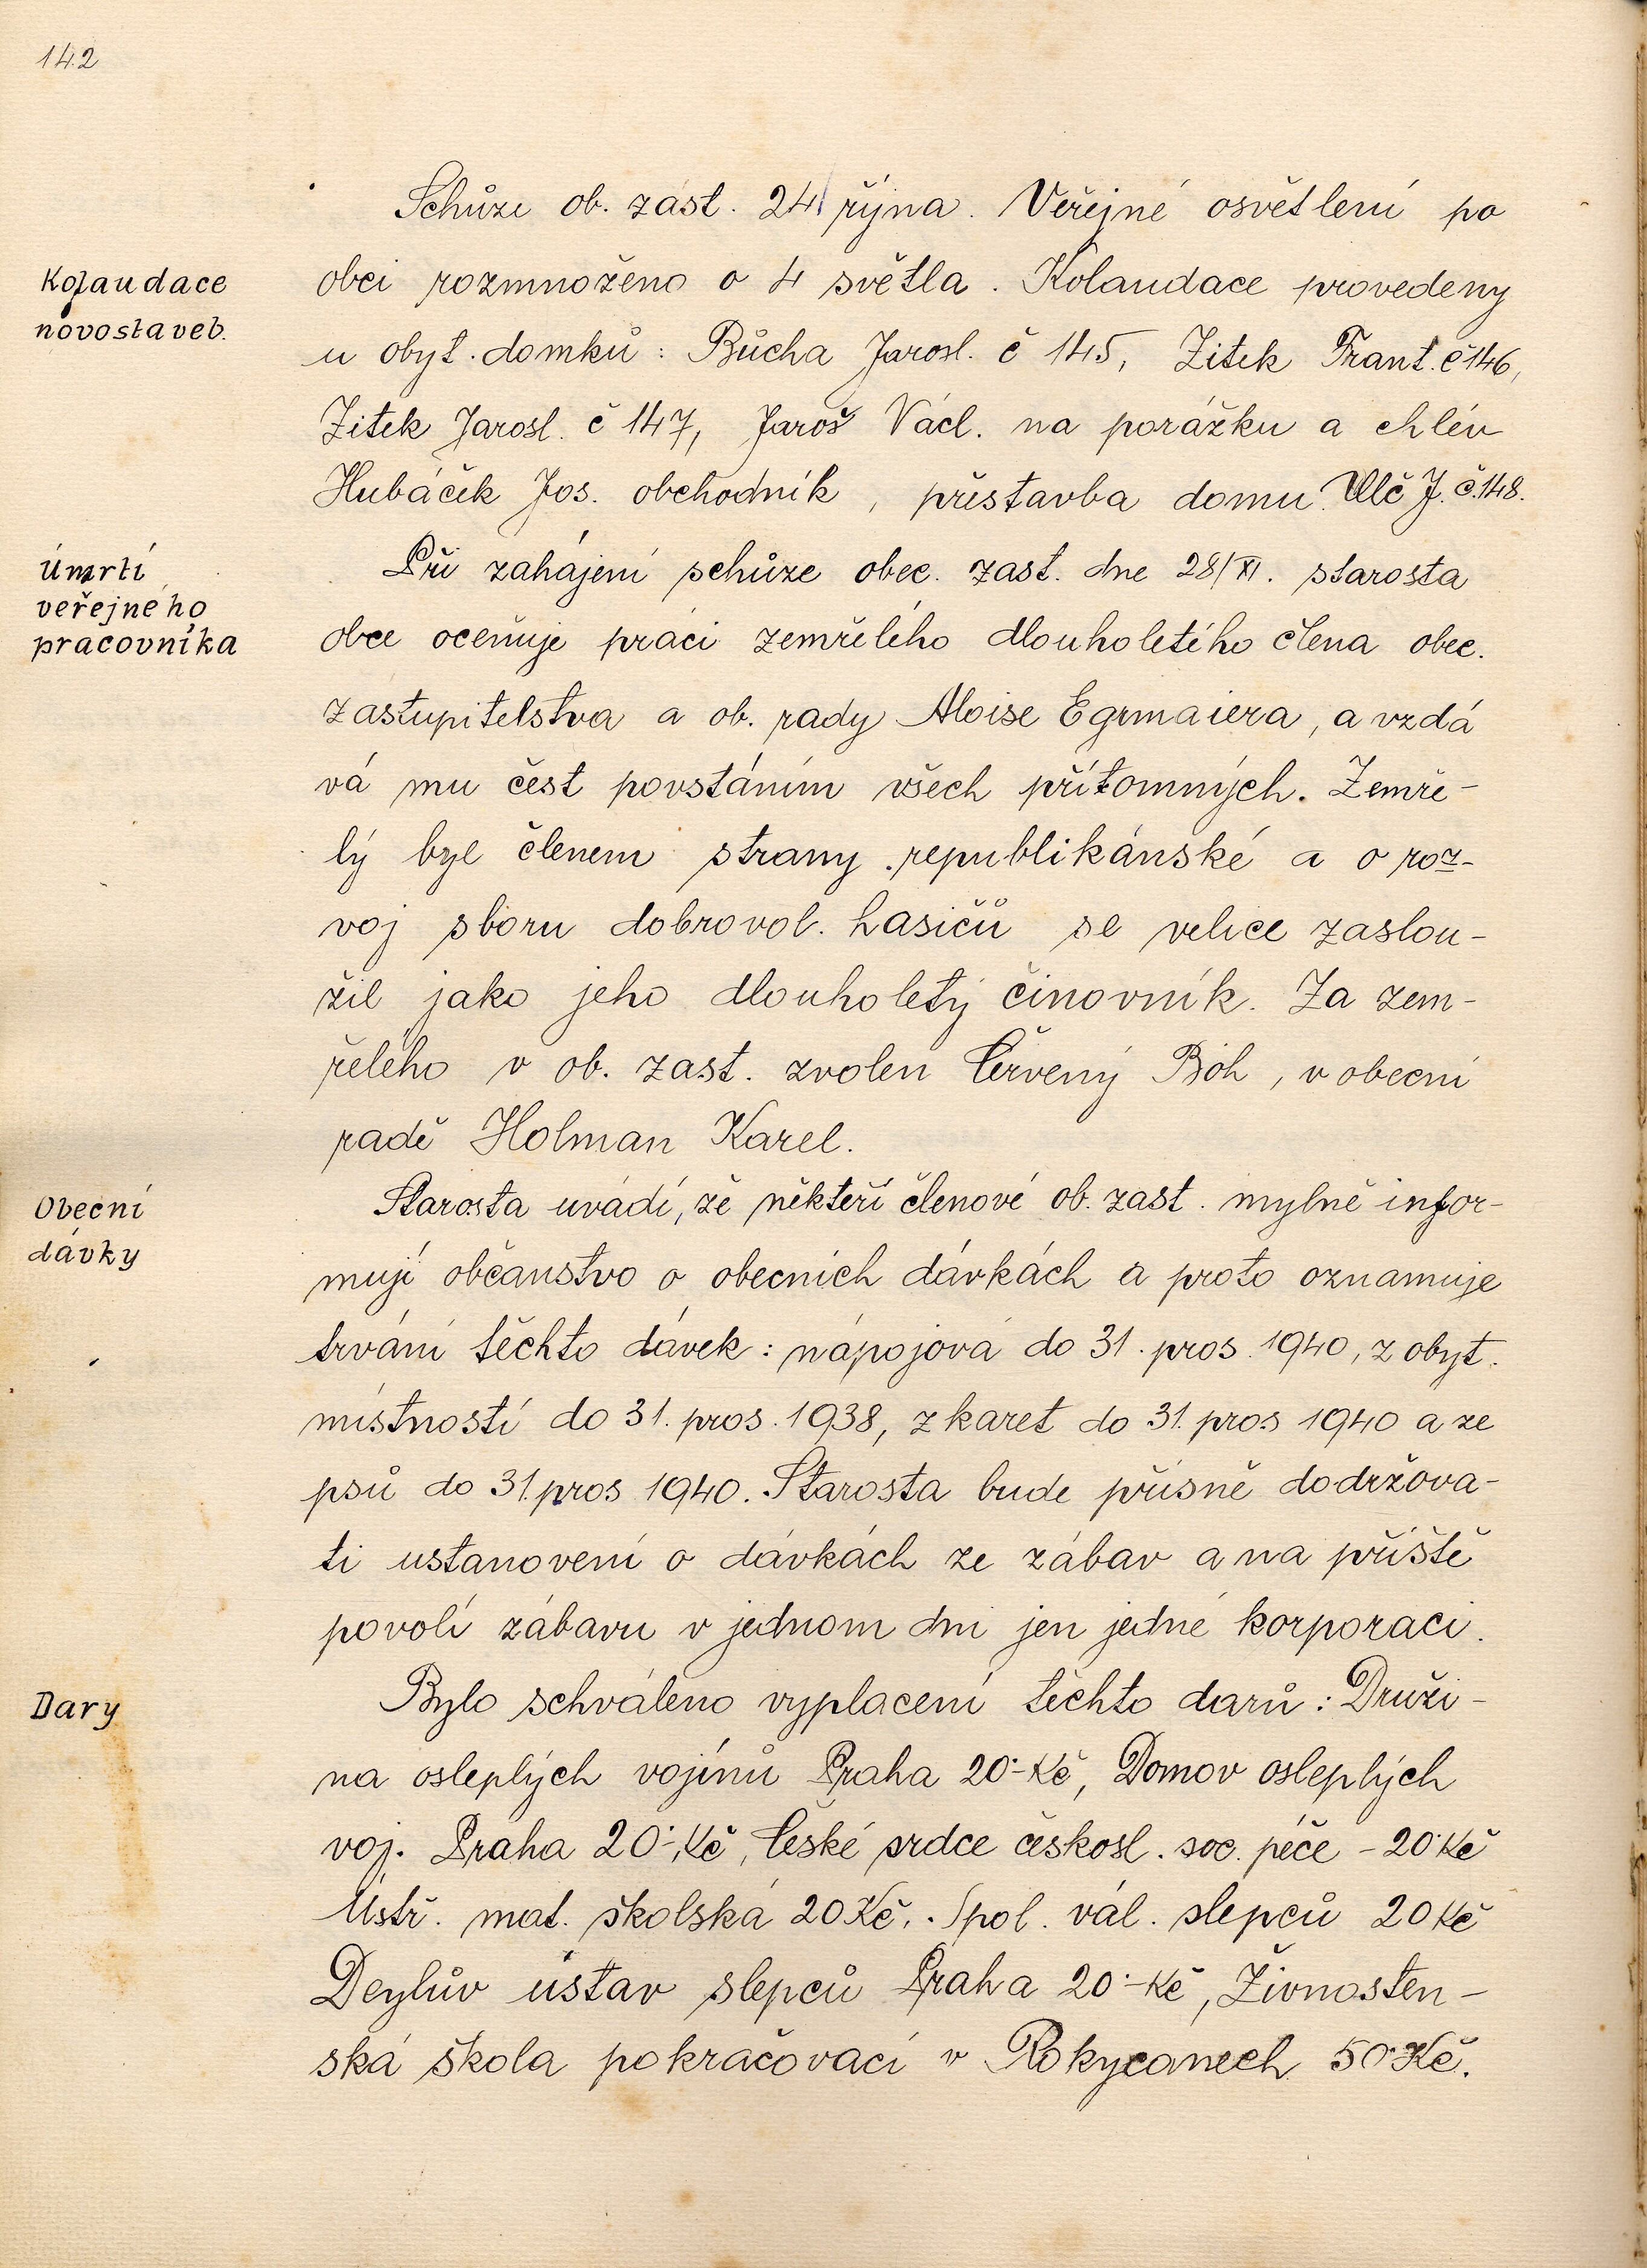 142
Schůze ob. zást. 24/ října. Veřejné osvětlení po
Kolaudace
novostaveb.
obci rozmnoženo o 4 světla. Kolaudace provedeny
u obyt. domků: Bůcha Jarosl. č 145, Zitek Frant. č 146,
Zitek Jarosl. č 147, Jaroš Václ. na porážku a chlév
Hubáček Jos. obchodník, přístavba domu. Ulč J. č. 148.
Úmrtí
veřejného
pracovníka
Při zahájení schůze obec. zast. dne 28/XI. starosta
obce oceňuje práci zemřelého dlouholetého člena obec.
zastupitelstva a ob. rady Aloise Egrmaiera, a vzdá
vá mu čest povstáním všech přítomných. Zemře-
lý byl členem strany republikánské a o roz-
voj sboru dobrovol. hasičů se velice zaslou-
žil jako jeho dlouholetý činovník. Za zem-
řelého v ob. zast. zvolen Červený Boh, v obecní
radě Holman Karel.
Obecní
dávky
Starosta uvádí, že někteří členové ob. zast. mylně infor-
mují občanstvo o obecních dávkách a proto oznamuje
trvání těchto dávek: nápojová do 31. pros. 1940, z obyt.
místností do 31. pros. 1938, z karet do 31. pros 1940 a ze
psů do 31. pros 1940. Starosta bude přísně dodržova-
ti ustanovení o dávkách ze zábav a na příště
povolí zábavu v jednom dni jen jedné korporaci.
Dary
Bylo schváleno vyplacení těchto darů: Druži-
na osleplých vojínů Praha 20·- Kč, Domov osleplých
voj. Praha 20·- Kč, České srdce českosl. soc. péče - 20· Kč
Ústř. mat. školská 20 Kč. Spol. vál. slepců 20 Kč
Deylův ústav slepců Praha 20·- Kč, Živnosten-
ská škola pokračovací v Rokycanech 50· Kč.